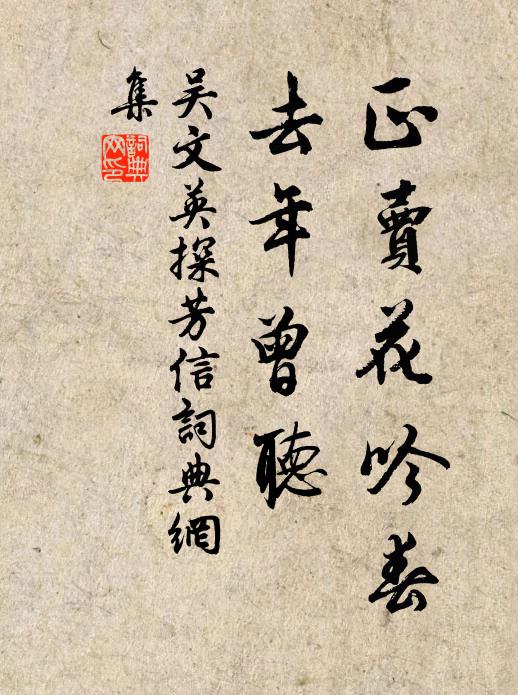 正賣花吟春
去年曾聽
吳文英探芳信詞典網
集
詞典
網印